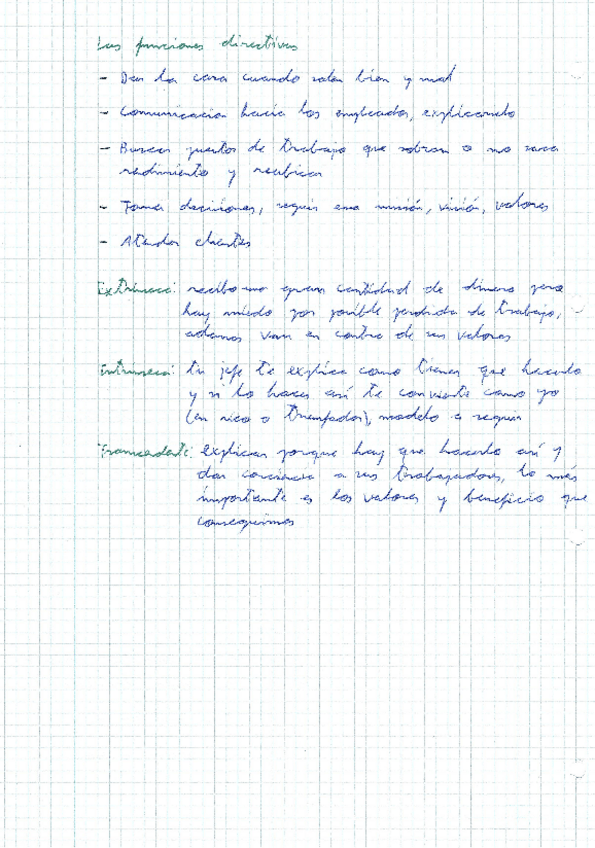 Las funciones directivas
- Dar la cara cuando salen bien y mal
- Comunicación hacia los empleados, explicando
- Buscar puestos de trabajo que sobran o no saca
rendimiento y reubicar
- Tomar decisiones, seguir una misión, visión, valores
- Atender clientes
Extrínseca: recibo una gran cantidad de dinero pero
hay miedo por posible perdida de trabajo,
además van en contra de sus valores
Intrínseca: tu jefe te explica como tienes que hacerlo
y si lo haces así te convierte como yo
(en rico o triunfador), modelo a seguir
Trascendente: explicar porque hay que hacerlo así y
dar conciencia a sus trabajadores, lo más
importante es los valores y beneficio que
conseguimos